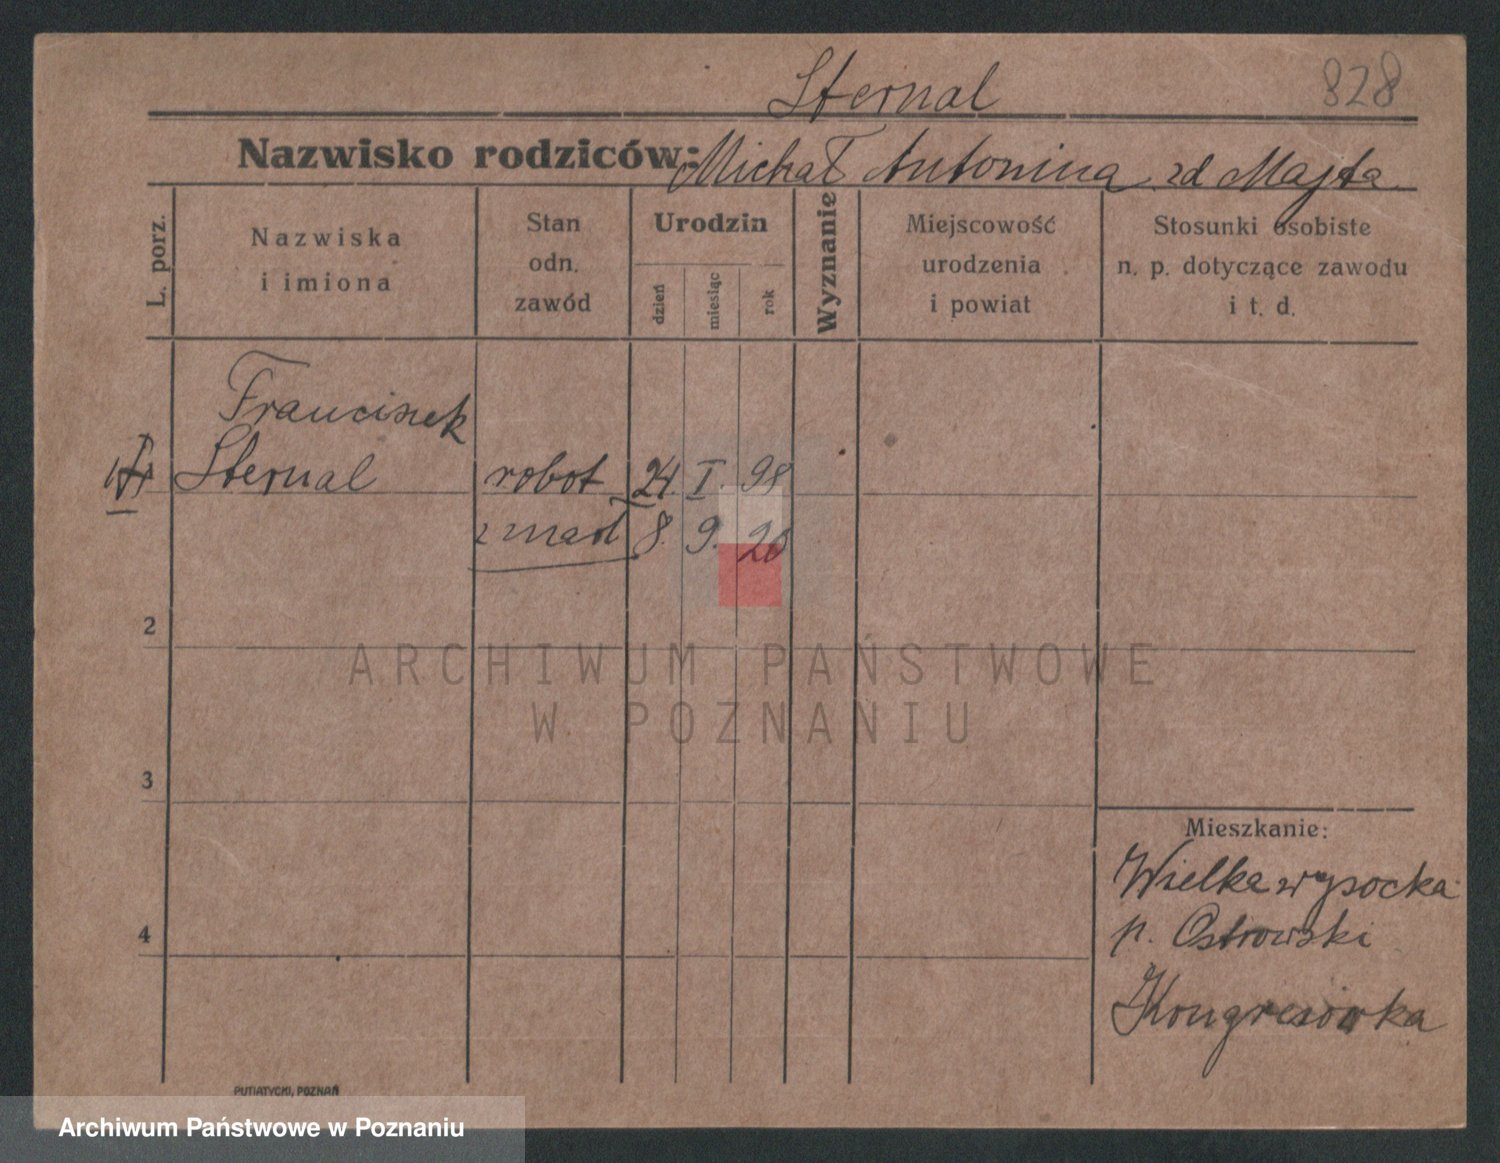 Sternal
828
Nazwisko rodziców: Michał Antonina zd Majta
L. porz.
Nazwiska
i imiona
Stan
odn.
zawód
Urodzin
dzień
miesiąc
rok
Wyznanie
Miejscowość
urodzenia
i powiat
Stosunki osobiste
n. p. dotyczące zawodu
i t. d.
Franciszek
Sternal robot 24 I. 98
zmarł 8. 9. 20
2
3
4
Mieszkanie:
Wielka wysocka
p. Ostrowski
Kongresówka
ARCHIWUM PAŃSTWOWE
W POZNANIU
PUTIATYCKI, POZNAŃ
Archiwum Państwowe w Poznaniu